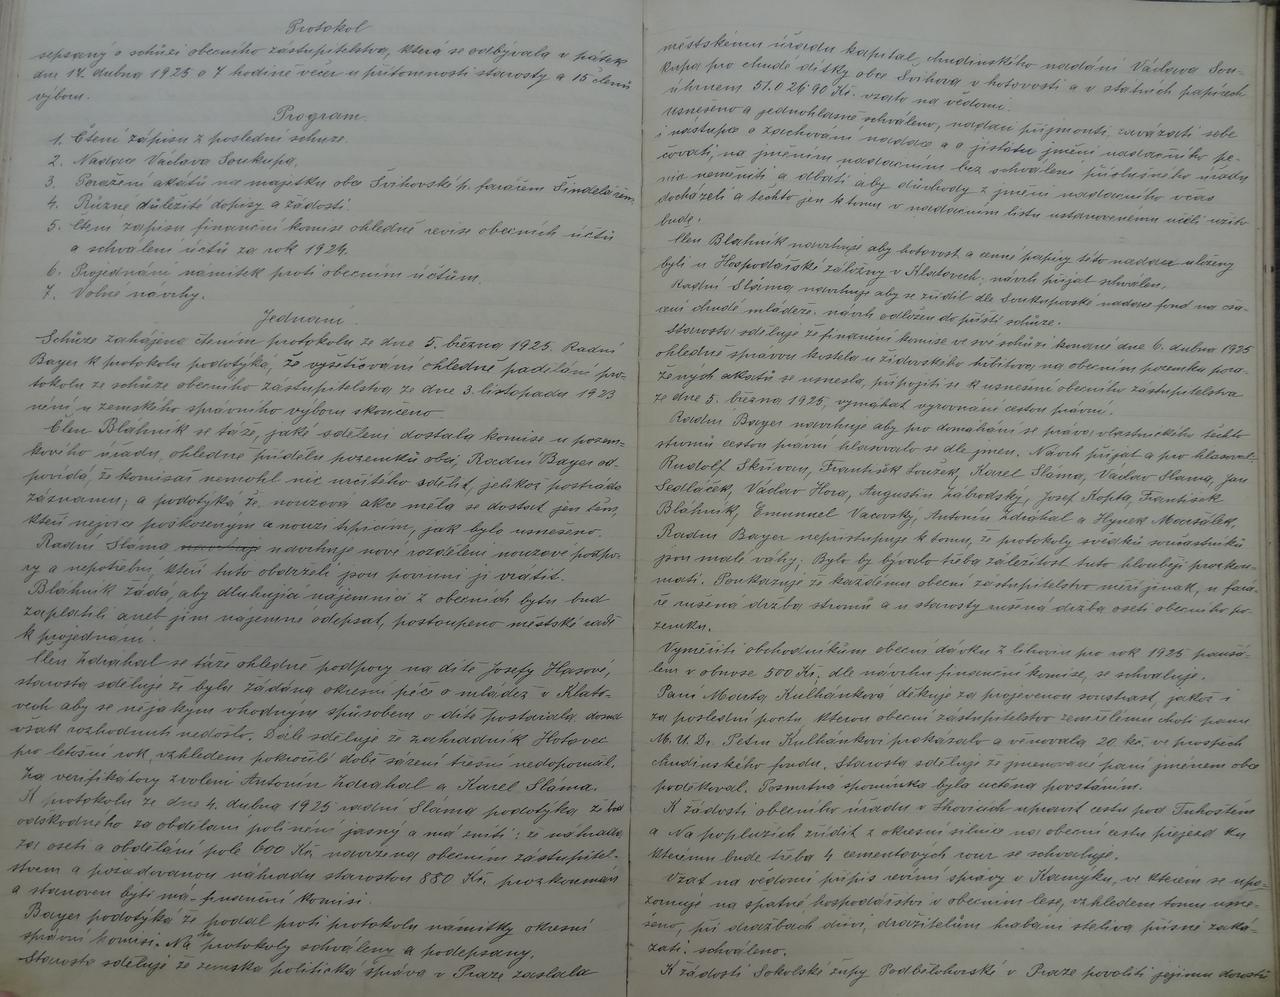 Protokol
sepsaný o schůzi obecního zástupitelstva, která se odbývala v pátek
dne 17. dubna 1925 o 7 hodině večer u přítomnosti starosty a 15 členů
výboru.
Program.
1. Čtení zápisu z poslední schůze.
2. Nadace Václava Soukupa.
3. Poražení akátů na majetku obce Švihovské p. farářem Šindelářem.
4. Různé důležité dopisy a žádosti.
5. Čtení zápisu finanční komise ohledně revise obecních účtů
a schválení účtů za rok 1924.
6. Projednání námitek proti obecním účtům.
7. Volné návrhy.
Jednání.
Schůze zahájena čtením protokolu ze dne 5. března 1925. Radní
Bayer k protokolu podotýká, že vyšetřování ohledně padělání pro-
tokolu ze schůze obecního zástupitelstva ze dne 3. listopadu 1923
není u zemského správního výboru skončeno.
Člen Blahník se táže, jaké sdělení dostala komise u pozem-
kového úřadu, ohledně přídělu pozemků obci, Radní Bayer od-
povídá, že komisař nemohl nic určitého sdělit, jelikož postrádá
záznamu; a podotýká že nouzová akce měla se dostat jen těm,
kteří nejvíce poškozeným a nouzi trpícím, jak bylo usneseno.
Radní Sláma navrhuje nové rozdělení nouzové podpo-
ry a nepotřební, kteří tuto obdrželi jsou povinni ji vrátit.
Blahník žádá, aby dluhující nájemníci z obecních bytů buď
zaplatili aneb jim nájemné odepsat, postoupeno městské radě
k projednání.
Člen Zdráhal se táže ohledně podpory na dítě Josefy Hasové,
starosta sděluje že byla žádána okresní péče o mládež v Klato-
vech aby se nějakým vhodným způsobem o dítě postarala, dosud
však rozhodnutí nedošlo. Dále sděluje že zahradník Hotovec
pro letošní rok, vzhledem pokročilé době sázení třešní nedoporučil.
Za verifikátory zvoleni Antonín Zdráhal a Karel Sláma.
K protokolu ze dne 4. dubna 1925 radní Sláma podotýká, že bod
odškodného za obdělání polí není jasný a má zníti; že náhrada
za osetí a obdělání pole 600 Kč. navržena obecním zástupitel-
stvem a požadovanou náhradu starostou 880 Kč. prozkoumati
a stanoven býti má finanční komisí.
Bayer podotýká že podal proti protokolu námitky okresní
správní komisi. Na to protokoly schváleny a podepsány.
Starosta sděluje že zemská politická správa v Praze zaslala
městskému úřadu kapitál, chudinského nadání Václava Sou-
kupa pro chudé dítky obce Švihova v hotovosti a v státních papírech
úhrnem 51.026.90 Kč. vzato na vědomí
usneseno a jednohlasně schváleno, nadaci přijmouti, zavázati sebe
i nástupce o zachování nadace a o jistotu jmění nadačního pe-
čovati, na jměním nadačním bez schválení příslušného úřadu
nic neměniti a dbáti aby důchody z jmění nadačního včas
docházeli a těchto jen k tomu v nadačním listu ustanovenému účeli užito
bude.
Člen Blahník navrhuje aby hotovost a cenné papíry této nadace uloženy
byli u Hospodářské záložny v Klatovech; návrh přijat schválen.
Radní Sláma navrhuje aby se zřídil dle Soukupovské nadace fond na oša-
cení chudé mládeže. návrh odložen do příští schůze.
Starosta sděluje že finanční komise ve své schůzi konané dne 6. dubna 1925
ohledně správou kostela u židovského hřbitova, na obecním pozemku pora-
žených akátů se usnesla, připojiti se k usnešení obecního zástupitelstva
ze dne 5. března 1925, vymáhat vyrovnání cestou právní.
Radní Bayer navrhuje aby pro domáhání se práva vlastnického těchto
stromů cestou právní hlasovalo se dle jmen. Návrh přijat a pro hlasoval.
Rudolf Skřivan, František Loužek, Karel Sláma, Václav Sláma, Jan
Sedláček, Václav Hora, Augustin Zábrodský, Josef Kopta, František
Blahník, Emanuel Vacovský, Antonín Zdráhal a Hynek Maršálek,
Radní Bayer nepřistupuje k tomu, že protokoly svědků souvrstníků
jsou malé váhy; Bylo by bývalo třeba záležitost tuto hlouběji prozkou-
mati. Poukazuje že každému obecní zástupitelstvo měří jinak, u fará-
ře rušená držba stromů a u starosty rušená držba osetí obecního po-
zemku.
Vyměřiti obchodníkům obecní dávku z lihovin pro rok 1925 paušá-
lem v obnose 500 Kč. dle návrhu finanční komise, se schvaluje.
Paní Marta Kulhánková děkuje za projevenou soustrast, jakož i
za poslední poctu, kterou obecní zástupitelstvo zemřelému choti panu
M.U.Dr. Petru Kulhánkovi prokázalo a věnovala 20. kč. ve prospěch
chudinského fondu. Starosta sděluje že jmenované paní jménem obce
poděkoval. Posmrtná spomínka byla uctěna povstáním.
K žádosti obecního úřadu v Stropčicích upravit cestu pod Tuhoštěm
a Na popluzích zřídit z okresní silnice na obecní cestu přejezd ku
kterému bude třeba 4 cementových rour se schvaluje.
Vzat na vědomí přípis revírní správy v Kamýku, ve kterém se upo-
zorňuje na špatné hospodářství v obecním lese, vzhledem tomu usne-
šeno, při dražbách dříví, dražitelům hrabání steliva přísně zaká-
zati: schváleno.
K žádosti Sokolské župy Podbělohorské v Praze povoliti jejímu dorostu